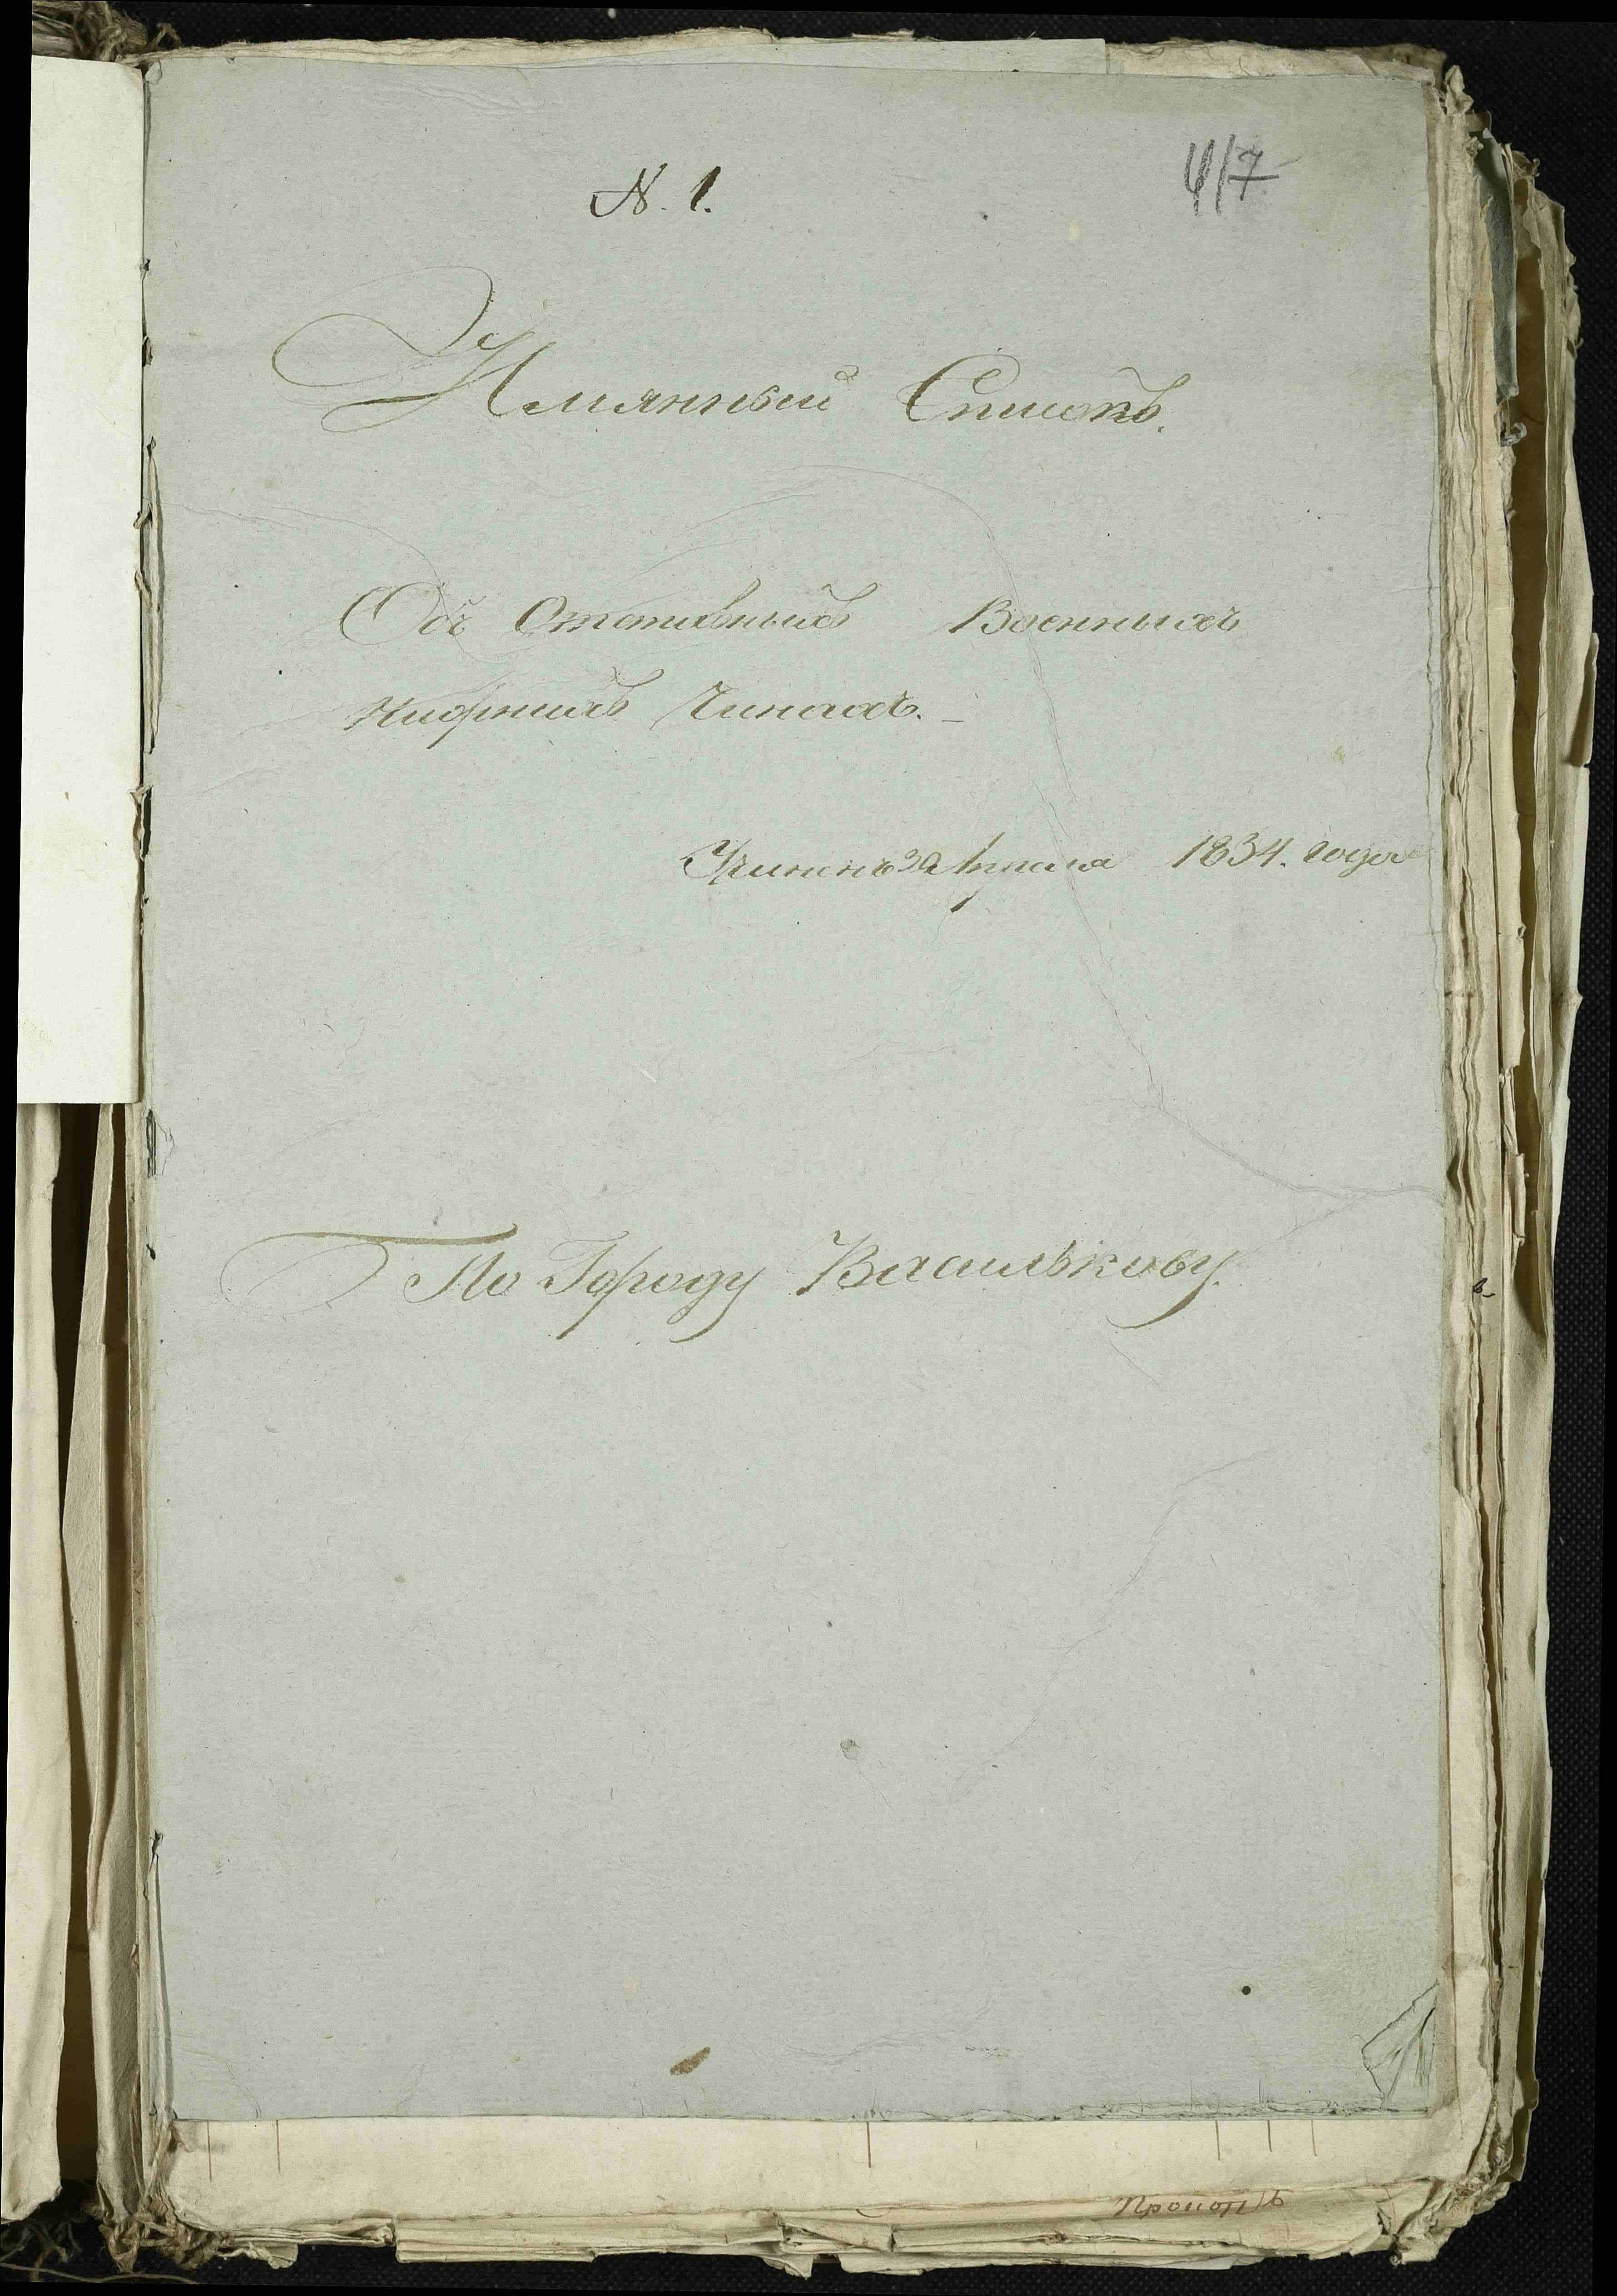 N. 1.
417
Имянный Списокъ.
Объ Отставныхъ Военныхъ
Нижнихъ Чинахъ. –
Учиненъ 30 Апреля 1834. года
По Городу Василькову.